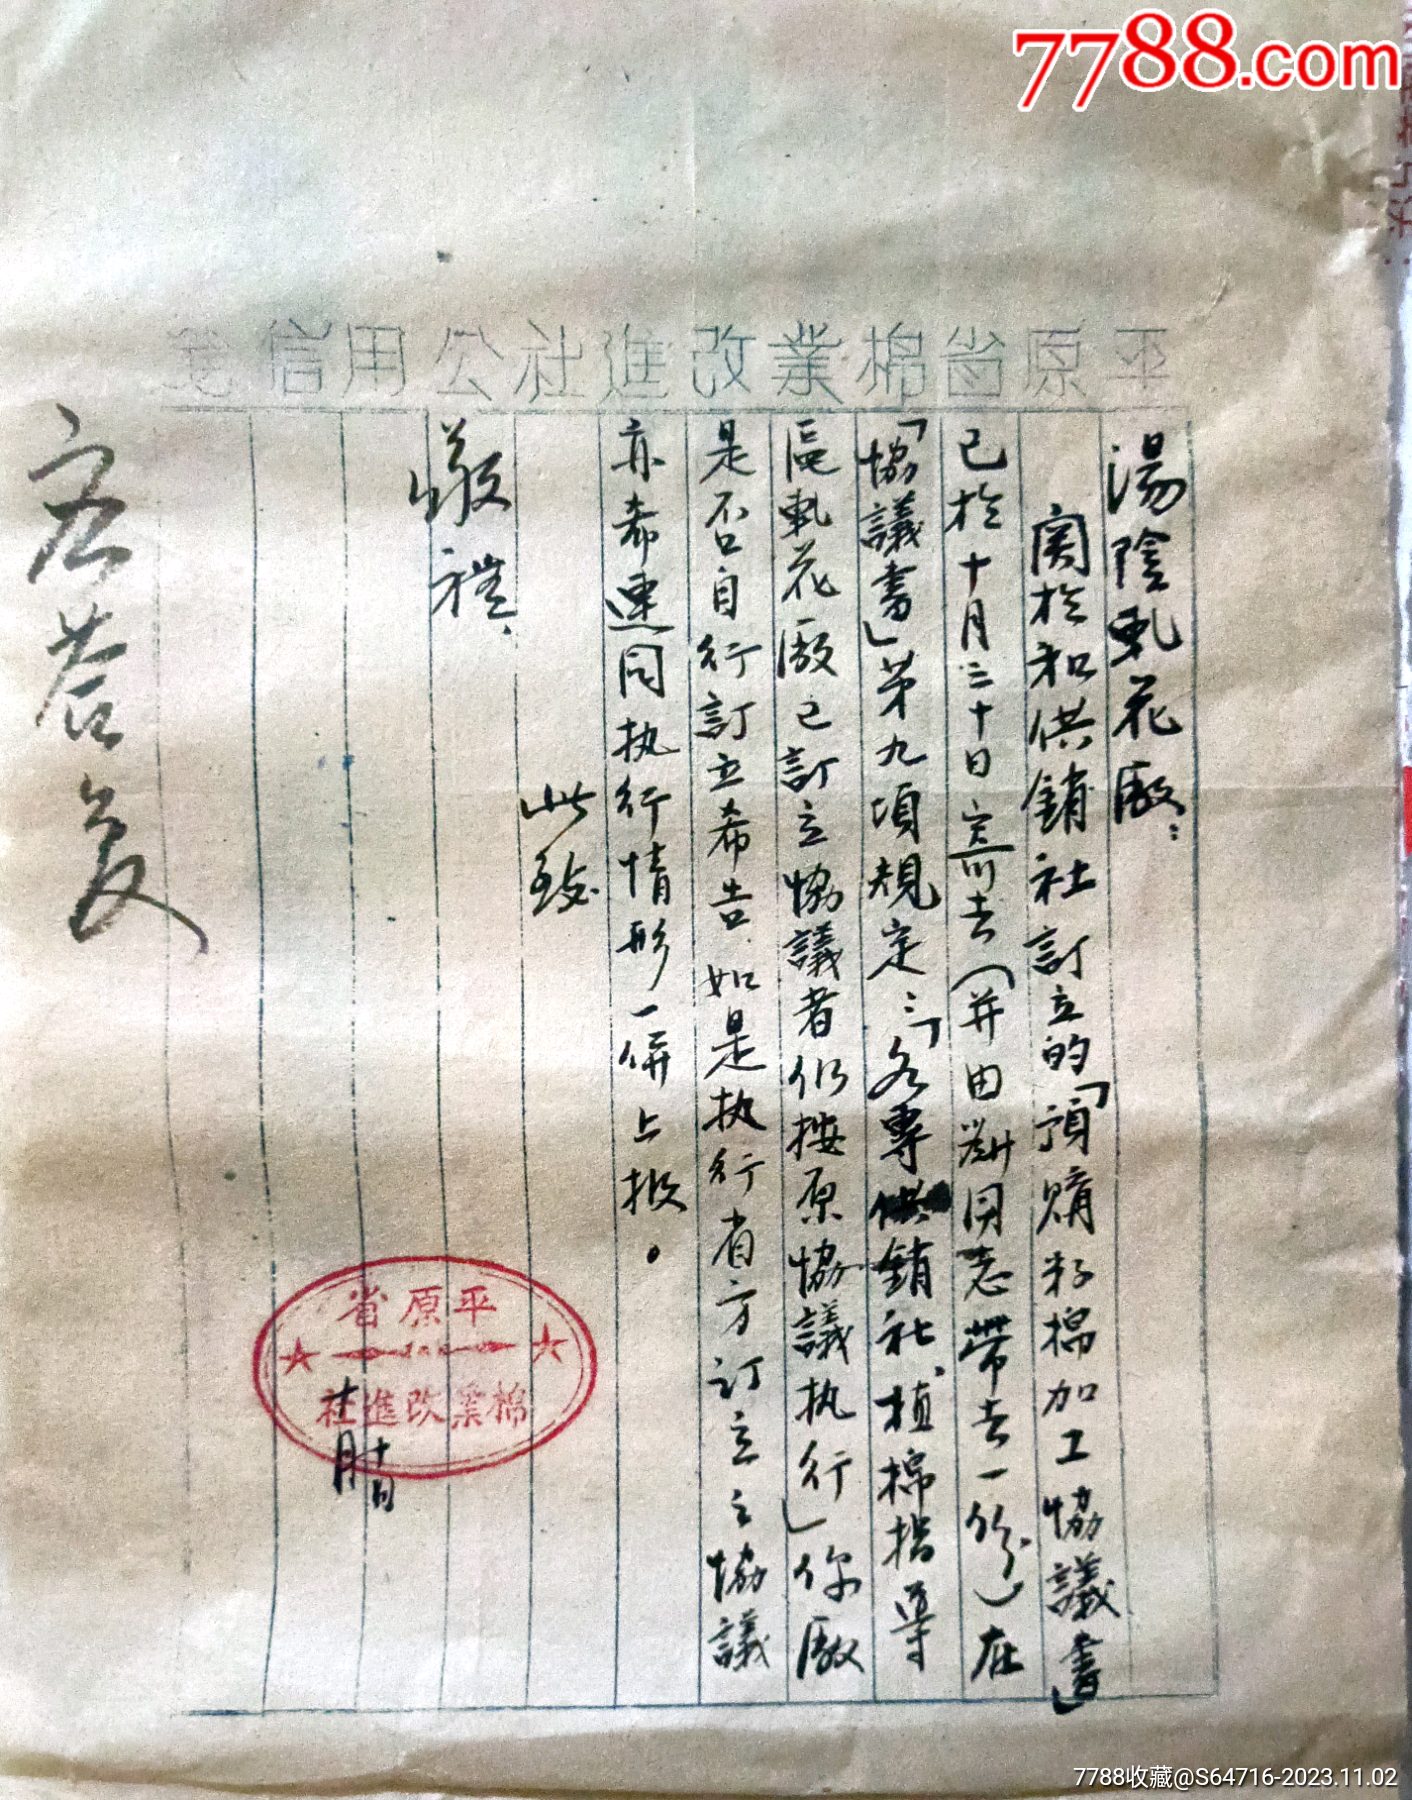 7788.com
平原省棉業改進社公用信箋
湯陰軋花廠：
関於和供銷社訂立的「預購籽棉加工協議書」
已於十月三十日寄去（并由同志帶去一份）在
「協議書」第九項規定：「各專供銷社、植棉指導
區軋花廠已訂立協議者仍按原協議执行」你廠
是否自行訂立希告．如是执行省方訂立之協議
亦希連同执行情形一併上报。
此致
敬禮、
平原省
棉業改進社
十一月十日
7788收藏@S64716-2023.11.02